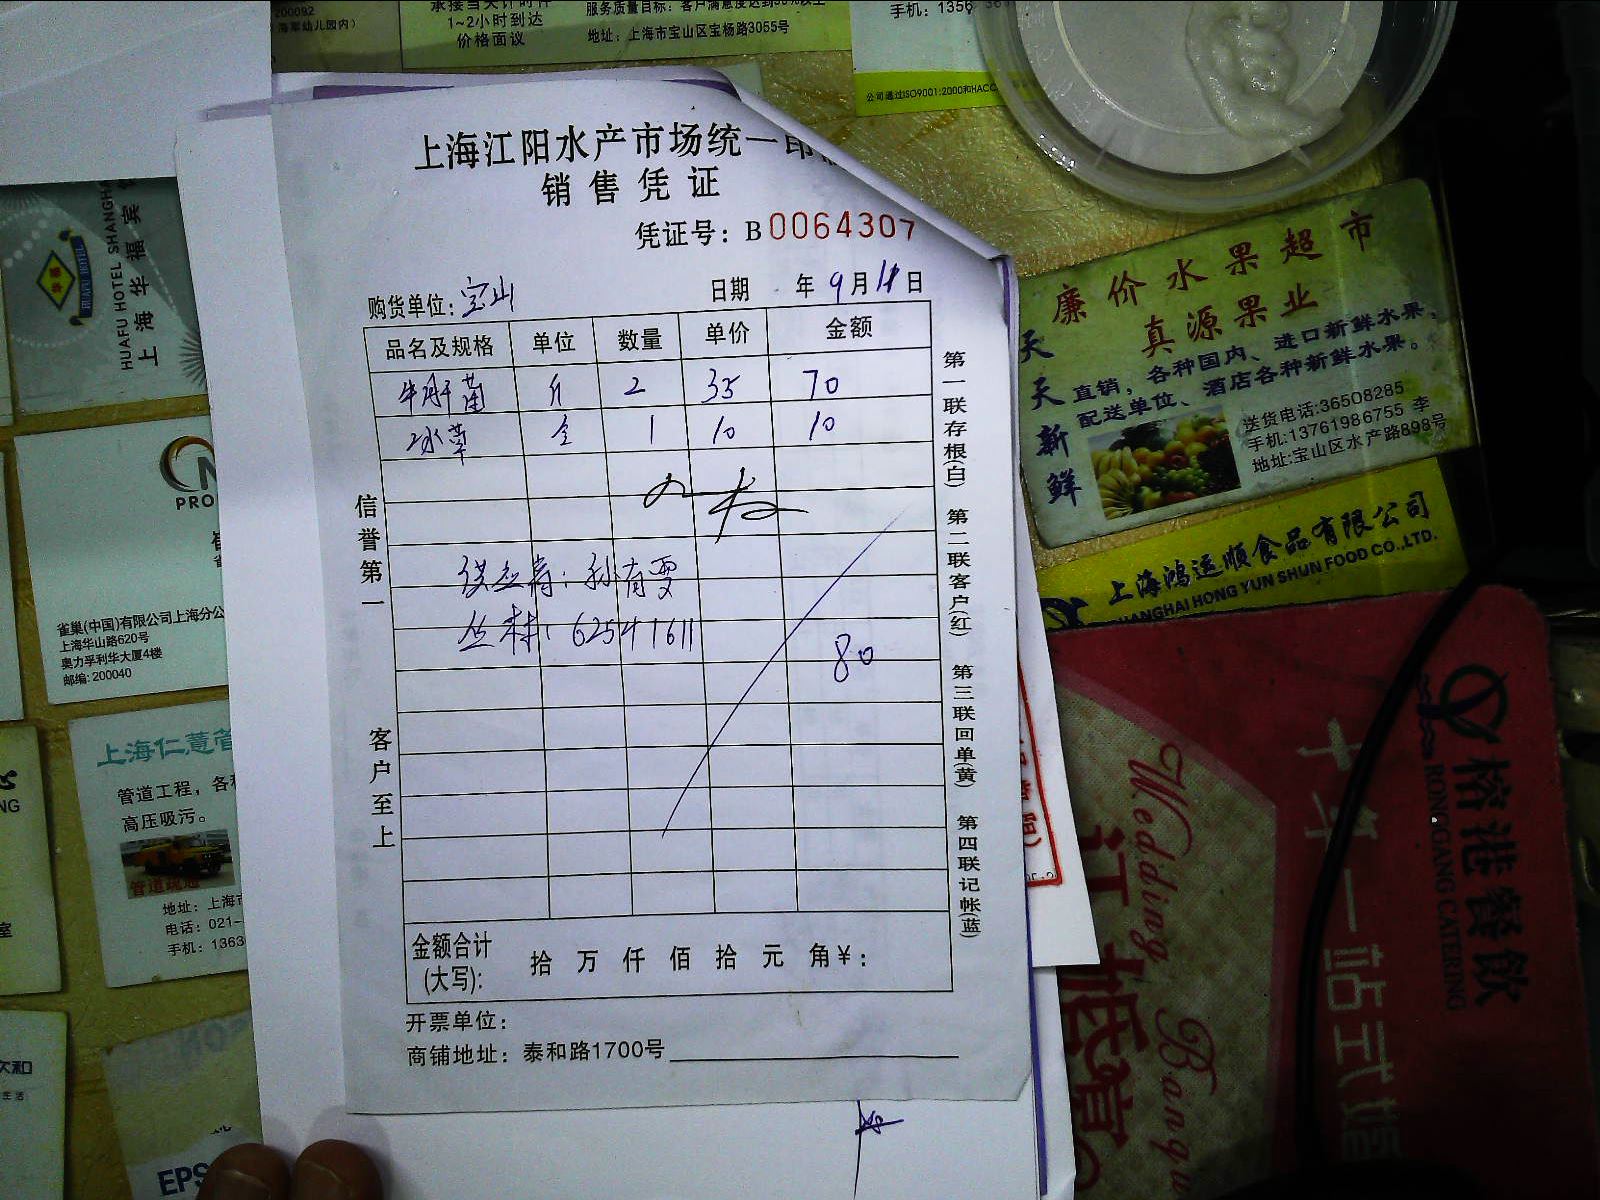 200092
海军幼儿园内)
1~2小时到达
价格面议
地址：上海市宝山区宝杨路3055号
手机：1356
公司通过ISO9001:2000和HACC
上海江阳水产市场统一印
销售凭证
凭证号：B0064307
购货单位：宝山
日期 年9月11日
品名及规格 单位 数量 单价 金额
牛肝菌 斤 2 35 70
冰草 盒 1 10 10
供应商：孙有雯
丛林：62541611
80
金额合计
(大写)：
拾 万 仟 佰 拾 元 角￥：
开票单位：
商铺地址：泰和路1700号
信誉第一
客户至上
第一联存根(白) 第二联客户(红) 第三联回单(黄) 第四联记帐(蓝)
HUAFU HOTEL SHANGHA
上海华福宾
HUAFU HOTEL
PRO
雀巢(中国)有限公司上海分公
上海华山路620号
奥力孚利华大厦4楼
邮编：200040
上海仁薏管
管道工程，各
高压吸污。
管道疏通
地址：上海市
电话：021-
手机：1363
EPS
廉价水果超市
真源果业
天天新鲜
直销，各种国内、进口新鲜水果，
配送单位、酒店各种新鲜水果。
送货电话:36508285
手机:13761986755 李
地址:宝山区水产路898号
上海鸿运顺食品有限公司
SHANGHAI HONG YUN SHUN FOOD CO.,LTD.
榕港餐饮
RONGGANG CATERING
十年一站式婚
Wedding Banqu